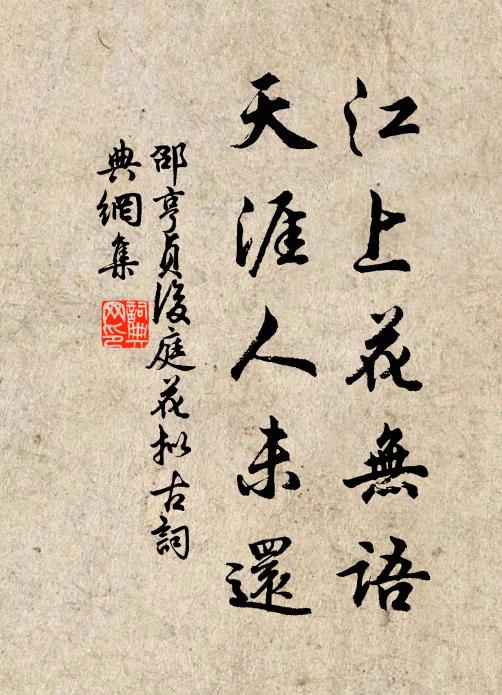 江上花無語
天涯人未還
邵亨貞後庭花拟古詞
典網集
詞典網印